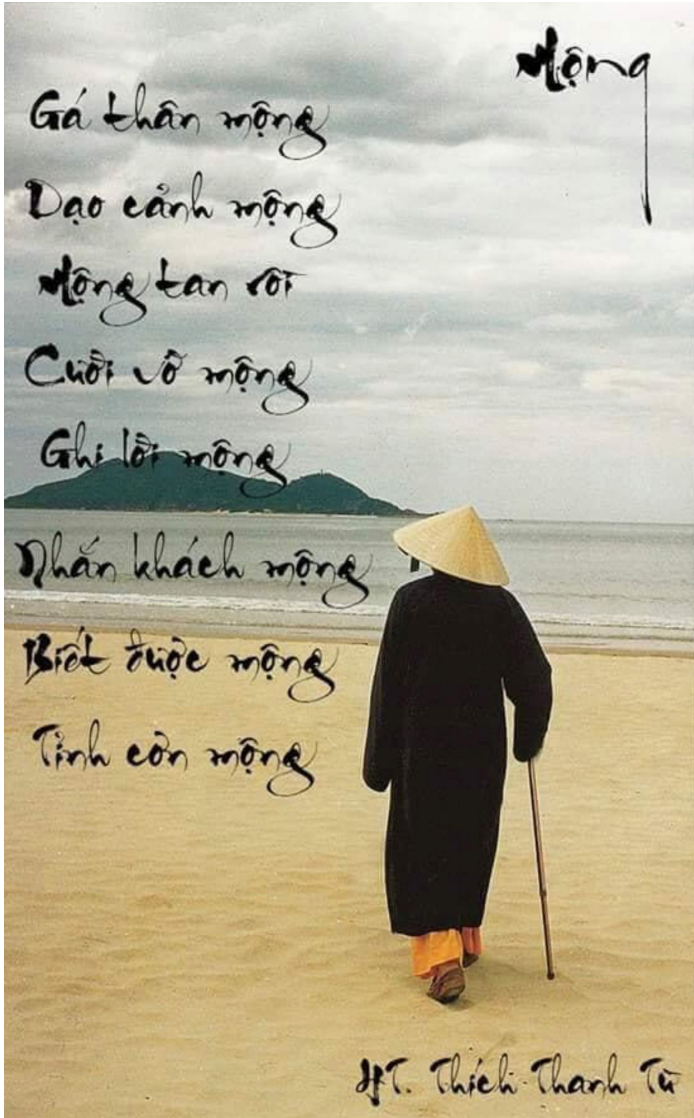 Mộng
Gá thân mộng
Dạo cảnh mộng
Mộng tan rồi
Cười vỡ mộng
Ghi lời mộng
Nhắn khách mộng
Biết được mộng
Tỉnh cơn mộng
HT. Thích Thanh Từ